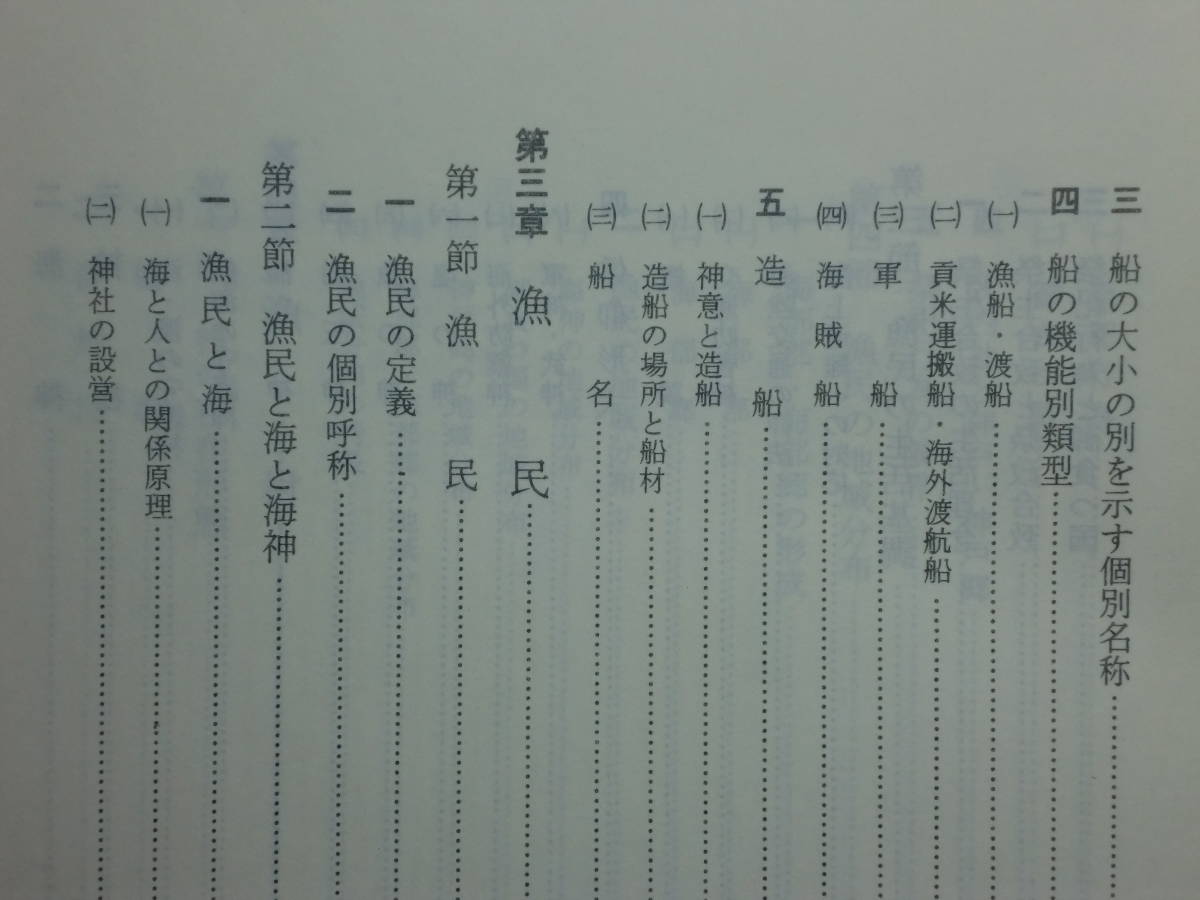 三 船の大小の別を示す個別名称
四 船の機能別類型
㈠ 漁船・渡船
㈡ 貢米運搬船・海外渡航船
㈢ 軍船
㈣ 海賊船
五 造船
㈠ 神意と造船
㈡ 造船の場所と船材
㈢ 船名
第三章 漁民
第一節 漁民
一 漁民の定義
二 漁民の個別呼称
第二節 漁民と海と海神
一 漁民と海
㈠ 海と人との関係原理
㈡ 神社の設営